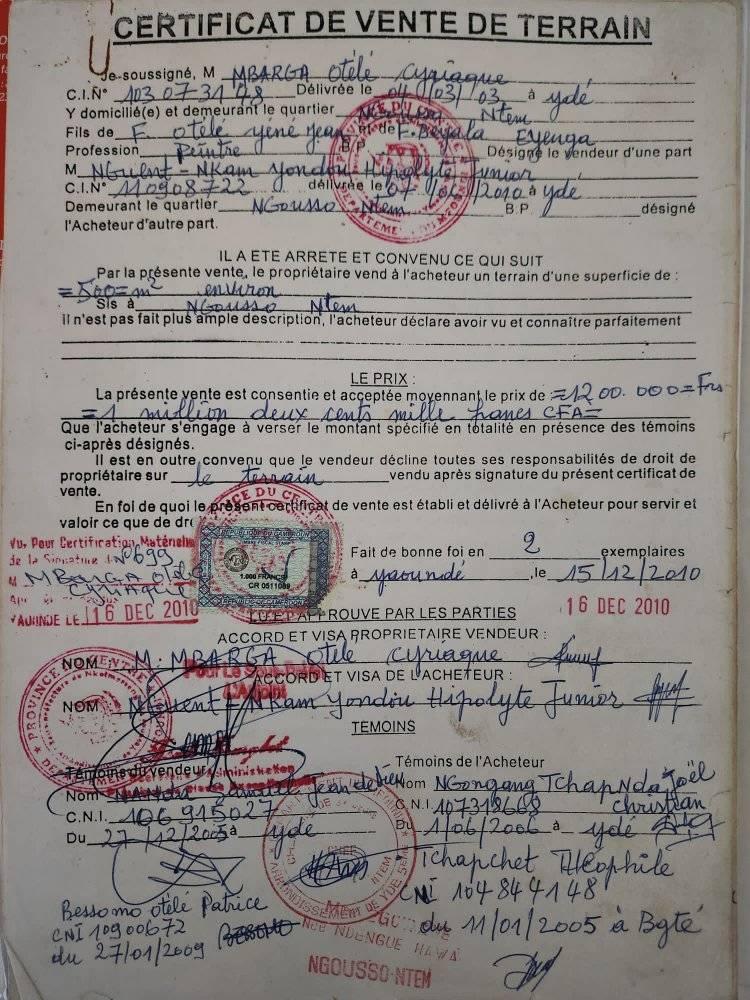 CERTIFICAT DE VENTE DE TERRAIN
Je soussigné, M MBARGA Otélé Cyriaque
C.I.N° 103 07-31 48 Délivrée le 04/03/03 à ydé
Y domicilié(e) et demeurant le quartier Ngousso Ntem
Fils de F. Otélé yéné Jean et de F. Beyala Eyenga
Profession Peintre B.P Désigné le vendeur d'une part
M NGuent-NKam Yondou Hipolyte Junior
C.I.N° 110908722 délivrée le 07/06/2010 à ydé
Demeurant le quartier NGousso Ntem B.P désigné
l'Acheteur d'autre part.
IL A ETE ARRETE ET CONVENU CE QUI SUIT
Par la présente vente, le propriétaire vend à l'acheteur un terrain d'une superficie de :
=500= m² environ
Sis à NGousso Ntem
il n'est pas fait plus ample description, l'acheteur déclare avoir vu et connaître parfaitement
LE PRIX :
La présente vente est consentie et acceptée moyennant le prix de =1200.000= Frs
=1 million deux cents mille francs CFA=
Que l'acheteur s'engage à verser le montant spécifié en totalité en présence des témoins
ci-après désignés.
Il est en outre convenu que le vendeur décline toutes ses responsabilités de droit de
propriétaire sur le terrain vendu après signature du présent certificat de
vente.
En foi de quoi le présent certificat de vente est établi et délivré à l'Acheteur pour servir et
valoir ce que de dr
Vu, Pour Certification Matérielle
de la Signature N°699
M MBARGA Otélé
Cyriaque
YAOUNDE LE 16 DEC 2010
REPUBLIQUE DU CAMEROUN
1.000 FRANCS
CR 0511089
Fait de bonne foi en 2 exemplaires
à yaoundé, le 15/12/2010
16 DEC 2010
LU ET APPROUVE PAR LES PARTIES
ACCORD ET VISA PROPRIETAIRE VENDEUR :
NOM M. MBARGA Otélé Cyriaque
Pour Le Sous-Préfet
L'Adjoint
ACCORD ET VISA DE L'ACHETEUR :
NOM NGuent-NKam Yondou Hipolyte Junior
TEMOINS
Témoins du vendeur
Témoins de l'Acheteur
Nom Jean de Dieu
Nom NGongang TchapNda Joël
Christian
C.N.I. 106915027
C.N.I. 107318668
Du 27/12/2005 à ydé
Du 1/06/2006 à ydé
Tchapchet THéophile
CNI 104844148
du 11/01/2005 à Bgté
Bessomo Otélé Patrice
CNI 10900672
du 27/01/2009
NGOUSSO-NTEM